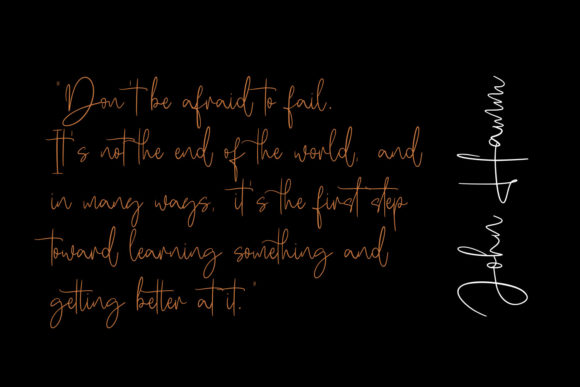 "Don't be afraid to fail.
It's not the end of the world, and
in many ways, it's the first step
toward learning something and
getting better at it."
John Hamm